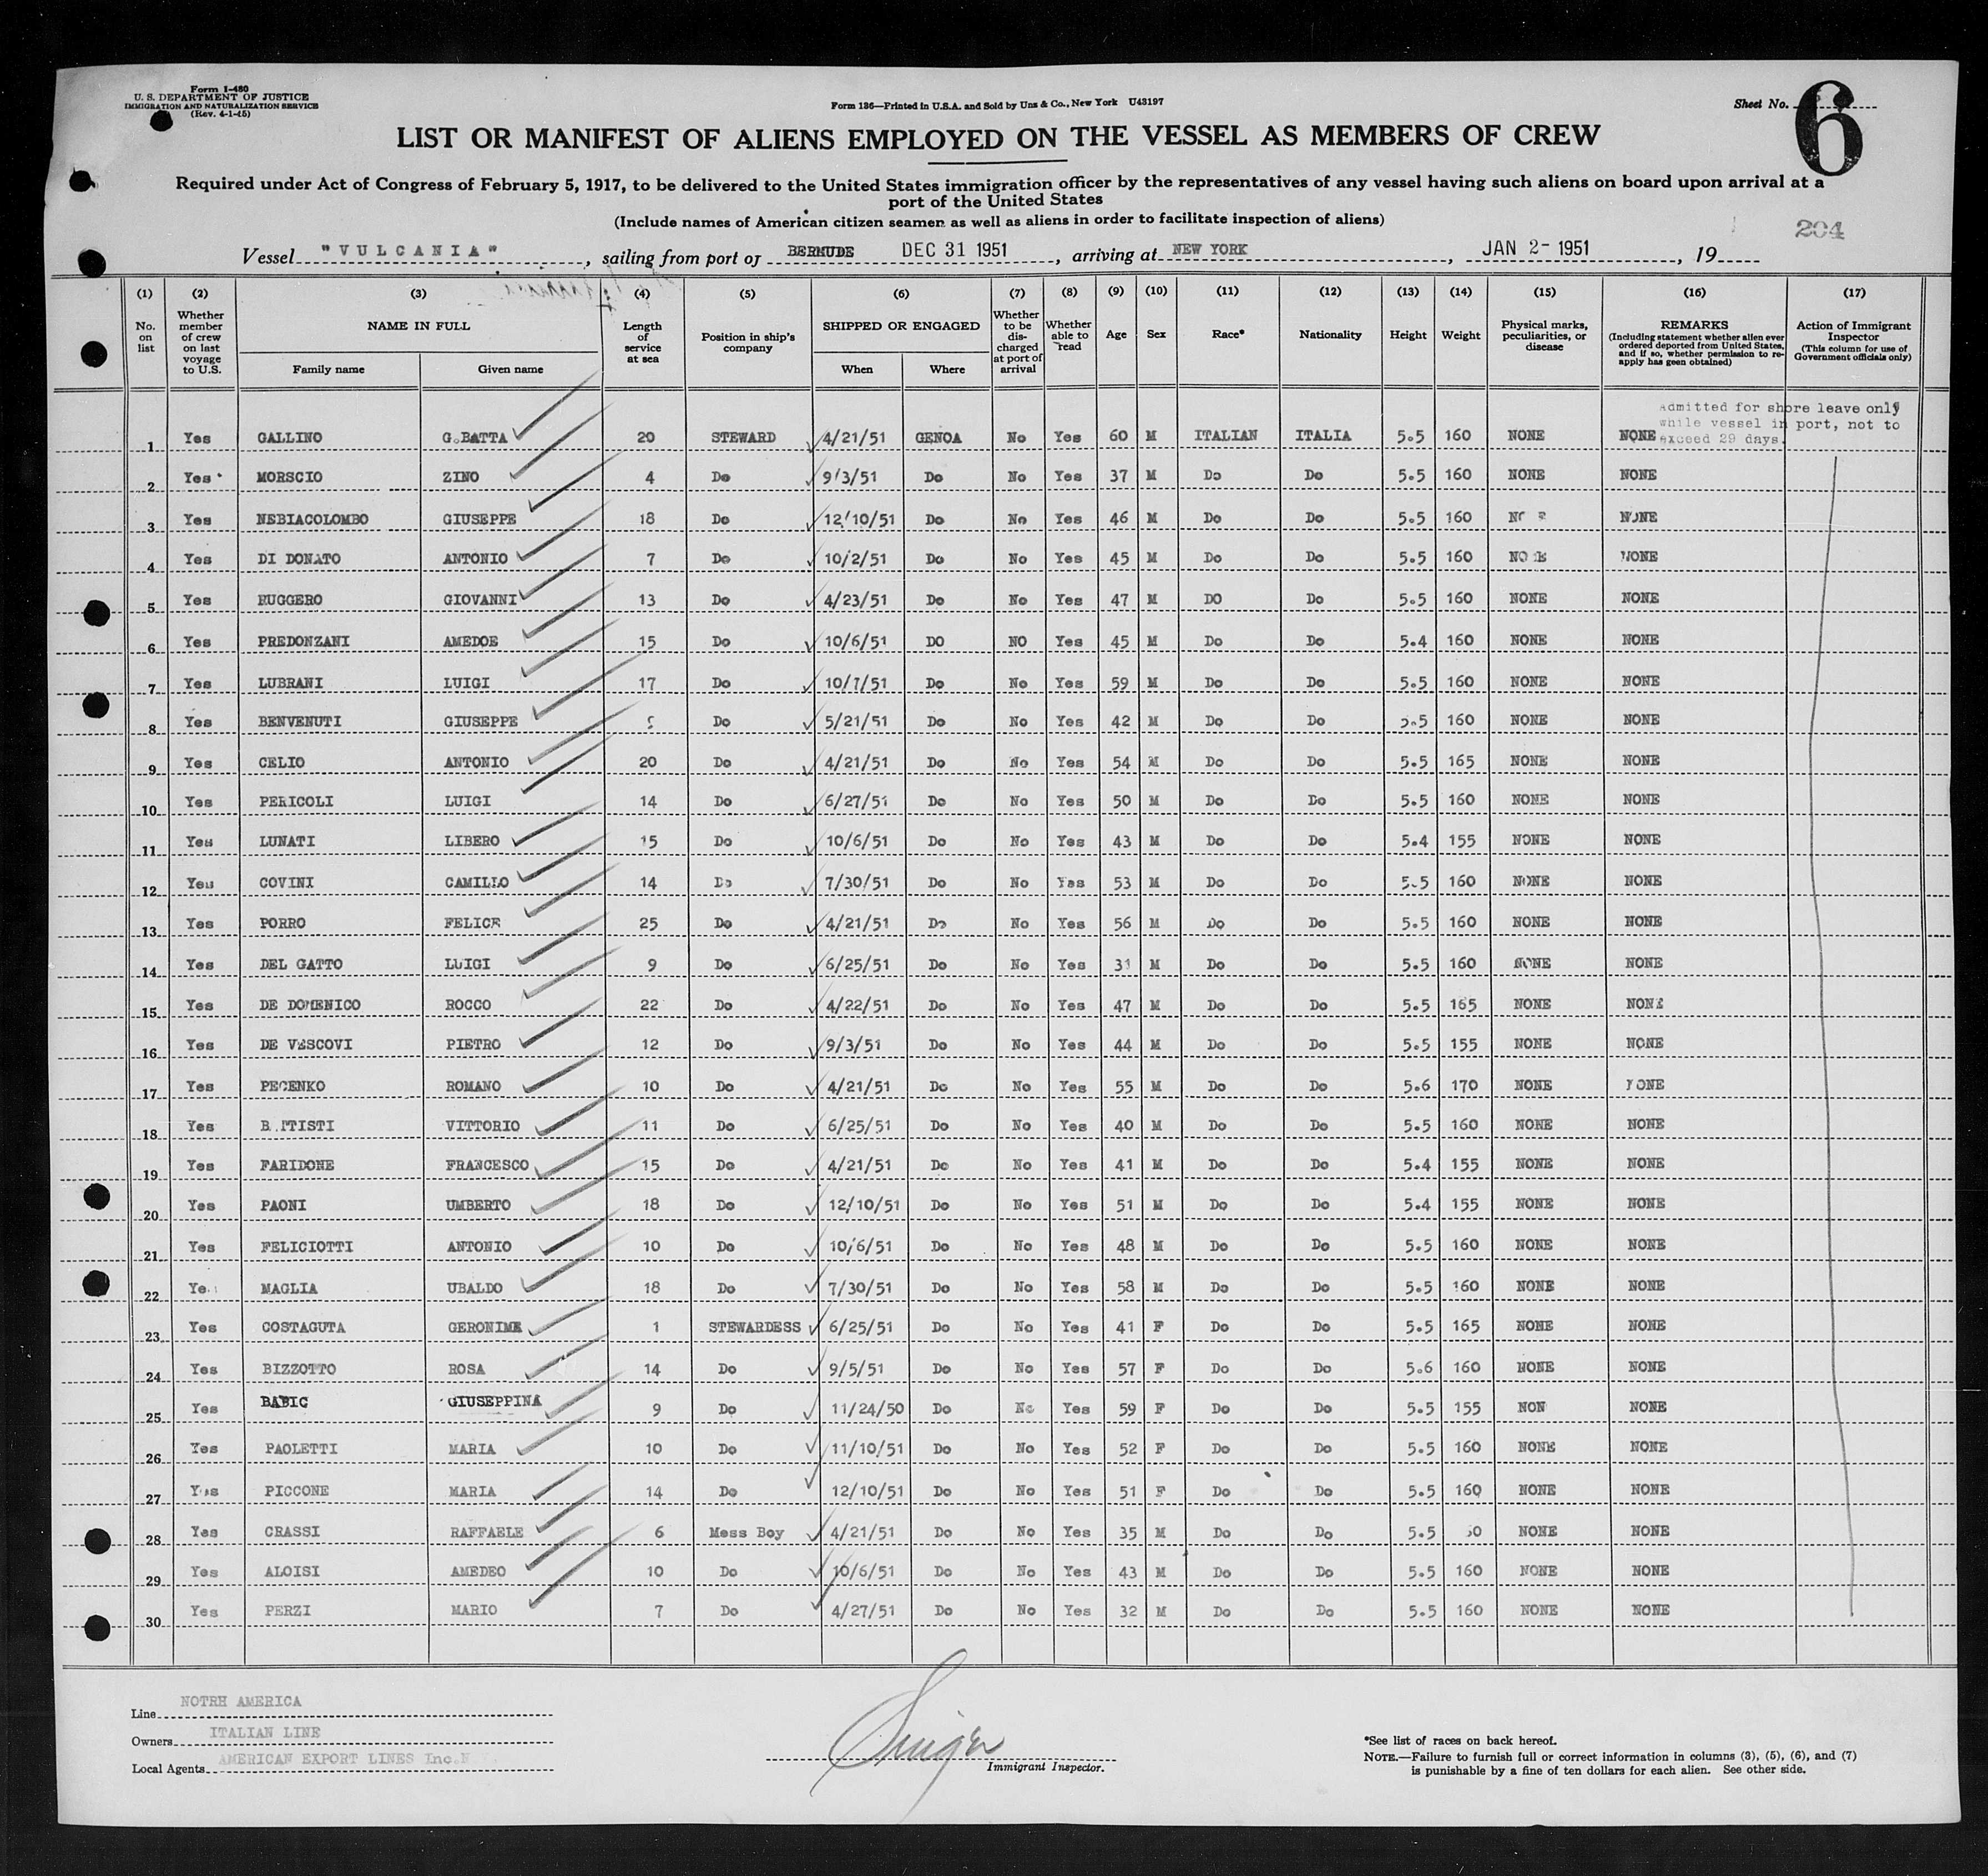 Form I-480
U. S. DEPARTMENT OF JUSTICE
IMMIGRATION AND NATURALIZATION SERVICE
(Rev. 4-1-45)
Form 136—Printed in U.S.A. and Sold by Unz & Co., New York U43197
Sheet No. 6
LIST OR MANIFEST OF ALIENS EMPLOYED ON THE VESSEL AS MEMBERS OF CREW
Required under Act of Congress of February 5, 1917, to be delivered to the United States immigration officer by the representatives of any vessel having such aliens on board upon arrival at a
port of the United States
(Include names of American citizen seamen as well as aliens in order to facilitate inspection of aliens)
204
Vessel "VULCANIA", sailing from port of BERMUDE DEC 31 1951, arriving at NEW YORK, JAN 2- 1951, 19
(1) (2) (3) (4) (5) (6) (7) (8) (9) (10) (11) (12) (13) (14) (15) (16) (17)
No. on list
Whether member of crew on last voyage to U.S.
NAME IN FULL
Family name Given name
Length of service at sea
Position in ship's company
SHIPPED OR ENGAGED
When Where
Whether to be discharged at port of arrival
Whether able to read
Age Sex Race* Nationality Height Weight
Physical marks, peculiarities, or disease
REMARKS
(Including statement whether alien ever ordered deported from United States, and if so, whether permission to re-apply has geen obtained)
Action of Immigrant Inspector
(This column for use of Government officials only)
Admitted for shore leave only
while vessel in port, not to
exceed 29 days.
1 Yes GALLINO G.BATTA 20 STEWARD 4/21/51 GENOA No Yes 60 M ITALIAN ITALIA 5.5 160 NONE NONE
2 Yes MORSCIO ZINO 4 Do 9/3/51 Do No Yes 37 M Do Do 5.5 160 NONE NONE
3 Yes NEBIACOLOMBO GIUSEPPE 18 Do 12/10/51 Do No Yes 46 M Do Do 5.5 160 NONE
4 Yes DI DONATO ANTONIO 7 Do 10/2/51 Do No Yes 45 M Do Do 5.5 160 NONE
5 Yes RUGGERO GIOVANNI 13 Do 4/23/51 Do No Yes 47 M DO Do 5.5 160 NONE NONE
6 Yes PREDONZANI AMEDOE 15 Do 10/6/51 DO NO Yes 45 M Do Do 5.4 160 NONE NONE
7 Yes LUBRANI LUIGI 17 Do 10/7/51 Do No Yes 59 M Do Do 5.5 160 NONE NONE
8 Yes BENVENUTI GIUSEPPE Do 5/21/51 Do No Yes 42 M Do Do 5.5 160 NONE NONE
9 Yes CELIO ANTONIO 20 Do 4/21/51 Do No Yes 54 M Do Do 5.5 165 NONE NONE
10 Yes PERICOLI LUIGI 14 Do 6/27/51 Do No Yes 50 M Do Do 5.5 160 NONE NONE
11 Yes LUNATI LIBERO 15 Do 10/6/51 Do No Yes 43 M Do Do 5.4 155 NONE NONE
12 Yes COVINI CAMILLO 14 Do 7/30/51 Do No Yes 53 M Do Do 5.5 160 NONE NONE
13 Yes PORRO FELICE 25 Do 4/21/51 Do No Yes 56 M Do Do 5.5 160 NONE NONE
14 Yes DEL GATTO LUIGI 9 Do 6/25/51 Do No Yes 31 M Do Do 5.5 160 NONE NONE
15 Yes DE DOMENICO ROCCO 22 Do 4/22/51 Do No Yes 47 M Do Do 5.5 165 NONE NONE
16 Yes DE VESCOVI PIETRO 12 Do 9/3/51 Do No Yes 44 M Do Do 5.5 155 NONE NONE
17 Yes PECENKO ROMANO 10 Do 4/21/51 Do No Yes 55 M Do Do 5.6 170 NONE NONE
18 Yes VITTORIO 11 Do 6/25/51 Do No Yes 40 M Do Do 5.5 160 NONE NONE
19 Yes FARIDONE FRANCESCO 15 Do 4/21/51 Do No Yes 41 M Do Do 5.4 155 NONE NONE
20 Yes PAONI UMBERTO 18 Do 12/10/51 Do No Yes 51 M Do Do 5.4 155 NONE NONE
21 Yes FELICIOTTI ANTONIO 10 Do 10/6/51 Do No Yes 48 M Do Do 5.5 160 NONE NONE
22 Yes MAGLIA UBALDO 18 Do 7/30/51 Do No Yes 58 M Do Do 5.5 160 NONE NONE
23 Yes COSTAGUTA GERONIMA 1 STEWARDESS 6/25/51 Do No Yes 41 F Do Do 5.5 165 NONE NONE
24 Yes BIZZOTTO ROSA 14 Do 9/5/51 Do No Yes 57 F Do Do 5.6 160 NONE NONE
25 Yes BABIC GIUSEPPINA 9 Do 11/24/50 Do No Yes 59 F Do Do 5.5 155 NON NONE
26 Yes PAOLETTI MARIA 10 Do 11/10/51 Do No Yes 52 F Do Do 5.5 160 NONE NONE
27 Yes PICCONE MARIA 14 Do 12/10/51 Do No Yes 51 F Do Do 5.5 160 NONE NONE
28 Yes CRASSI RAFFAELE 6 Mess Boy 4/21/51 Do No Yes 35 M Do Do 5.5 NONE NONE
29 Yes ALOISI AMEDEO 10 Do 10/6/51 Do No Yes 43 M Do Do 5.5 160 NONE NONE
30 Yes PERZI MARIO 7 Do 4/27/51 Do No Yes 32 M Do Do 5.5 160 NONE NONE
Line NOTRH AMERICA
Owners ITALIAN LINE
Local Agents AMERICAN EXPORT LINES Inc.N
Singer
Immigrant Inspector.
*See list of races on back hereof.
NOTE.—Failure to furnish full or correct information in columns (3), (5), (6), and (7)
is punishable by a fine of ten dollars for each alien. See other side.